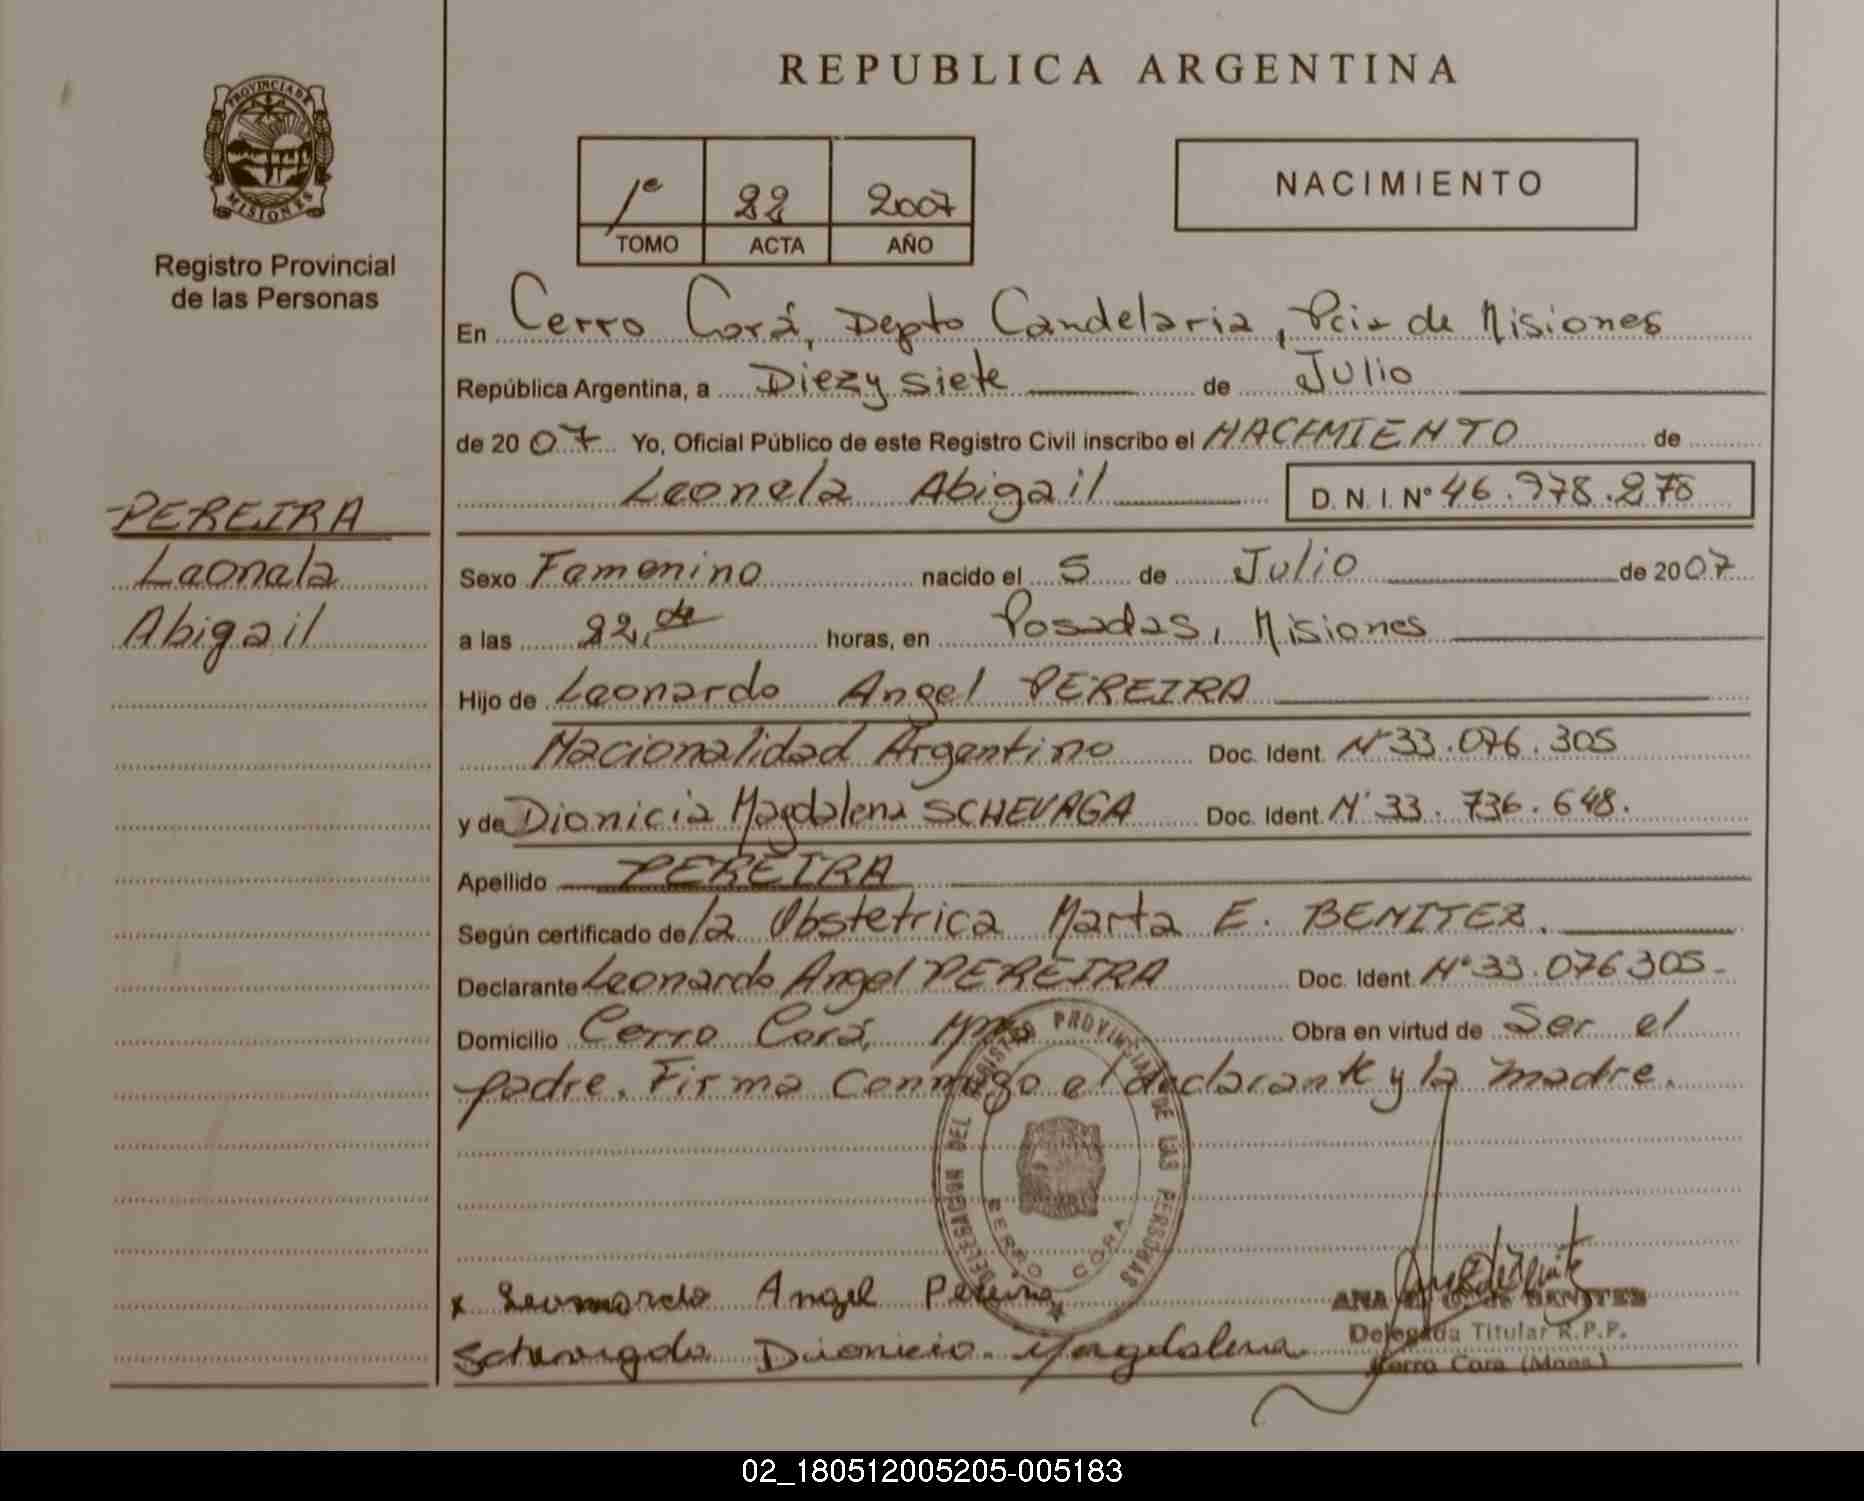 REPUBLICA ARGENTINA
PROVINCIA DE MISIONES
Registro Provincial
de las Personas
1º 22 2007
TOMO ACTA AÑO
NACIMIENTO
En Cerro Corá, Depto Candelaria, Pcia de Misiones
República Argentina, a Diez y siete de Julio
de 2007 Yo, Oficial Público de este Registro Civil inscribo el NACIMIENTO de
Leonela Abigail D. N. I. Nº 46.978.278
PEREIRA
Leonela
Abigail
Sexo Femenino nacido el 5 de Julio de 2007
a las 22, horas, en Posadas, Misiones
Hijo de Leonardo Angel PEREIRA
Nacionalidad Argentino Doc. Ident. Nº 33.076.305
y de Dionicia Magdalena SCHEVAGA Doc. Ident. Nº 33.736.648.
Apellido PEREIRA
Según certificado de la Obstetrica Marta E. BENITEZ.
Declarante Leonardo Angel PEREIRA Doc. Ident. Nº 33.076305-
Domicilio Cerro Corá, Mnes Obra en virtud de Ser el
padre. Firma Conmigo el declarante y la madre.
DELEGACION DEL REGISTRO PROVINCIAL DE LAS PERSONAS
CERRO CORA
x Leonardo Angel Pereira
Dionicia Magdalena
ANA E. G. de BENITEZ
Delegada Titular R.P.P.
Cerro Cora (Mnes)
02_180512005205-005183